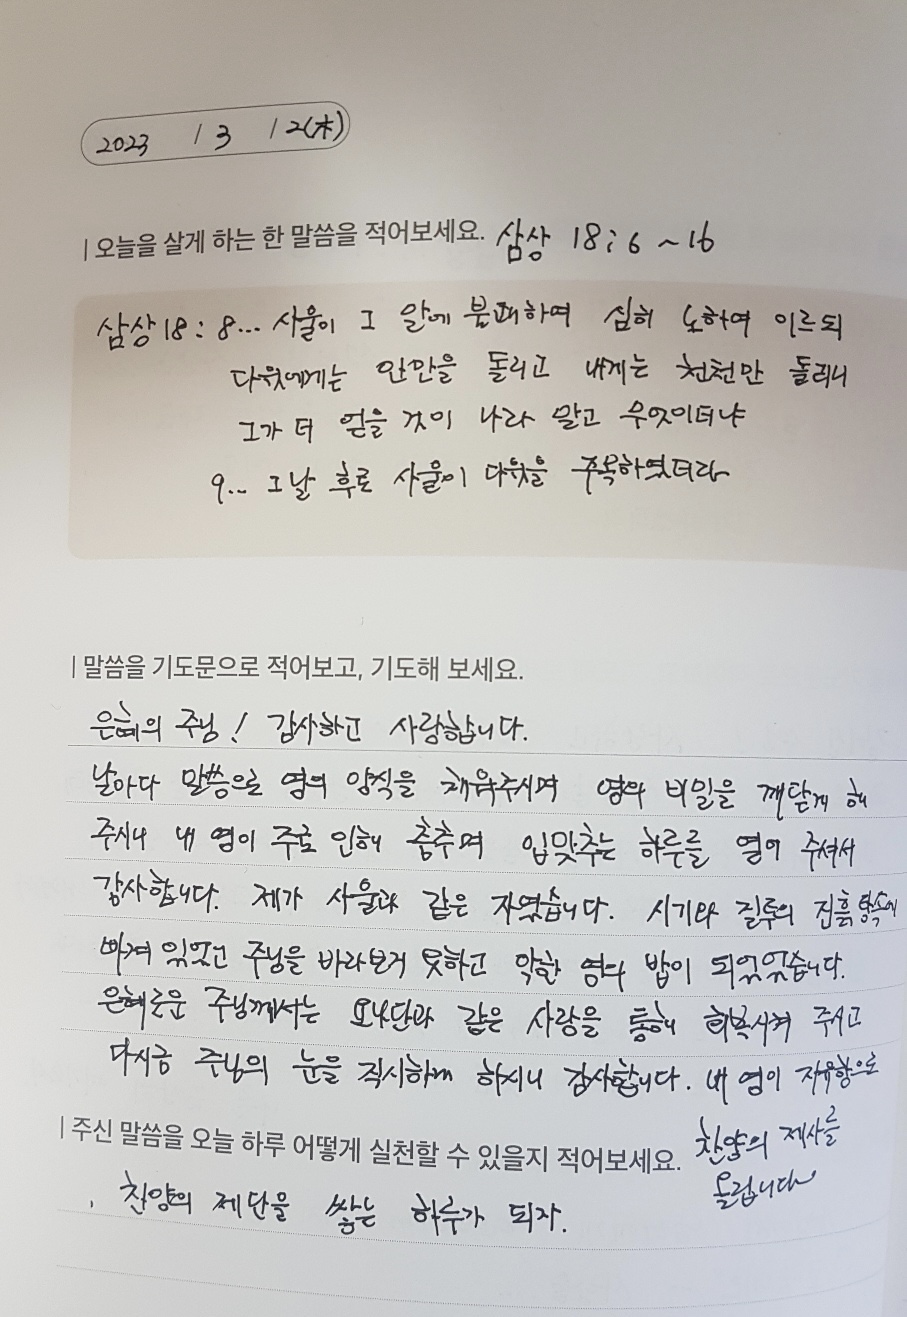 2023 / 3 / 2(木)
| 오늘을 살게 하는 한 말씀을 적어보세요. 삼상 18:6~16
삼상 18:8... 사울이 그 말에 불쾌하여 심히 노하여 이르되
다윗에게는 만만을 돌리고 내게는 천천만 돌리니
그가 더 얻을 것이 나라 말고 무엇이더냐
9... 그날 후로 사울이 다윗을 주목하였더라
| 말씀을 기도문으로 적어보고, 기도해 보세요.
은혜의 주님! 감사하고 사랑합니다.
날마다 말씀으로 영의 양식을 채워주시며 영의 비밀을 깨닫게 해
주시니 내 영이 주로 인해 춤추며 입맞추는 하루를 열어 주셔서
감사합니다. 제가 사울과 같은 자였습니다. 시기와 질투의 진흙탕속에
빠져 있었고 주님을 바라보지 못하고 악한 영의 밥이 되었었습니다.
은혜로운 주님께서는 요나단과 같은 사랑을 통해 회복시켜 주시고
다시금 주님의 눈을 직시하게 하시니 감사합니다. 내 영이 자유함으로
찬양의 제사를
올립니다
| 주신 말씀을 오늘 하루 어떻게 실천할 수 있을지 적어보세요.
. 찬양의 제단을 쌓는 하루가 되자.